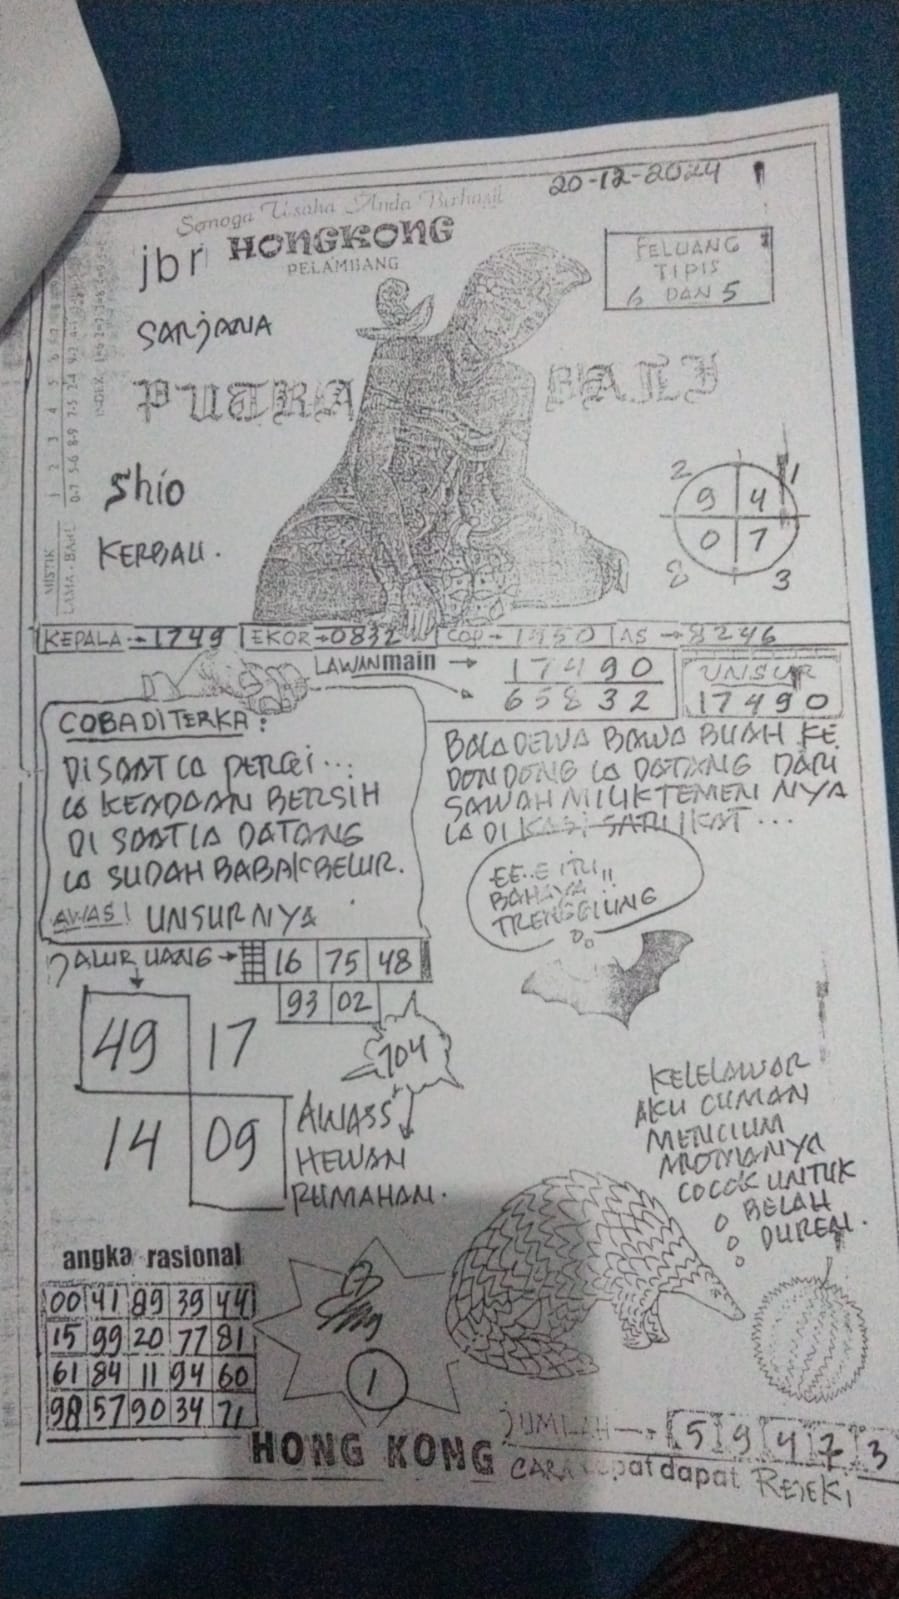 20-12-2024
Semoga Usaha Anda Berhasil
jbr HONGKONG
PELAMBANG
PELUANG
TIPIS
6 DAN 5
SARJANA
PUTRA BALI
Shio
KERBAU.
2 1
9 4
0 7
8 3
MISTIK
LAMA. BARU
INDEX
KEPALA → 1749 EKOR → 0832 COP → 1950 AS → 8246
LAWAN main → 17490
65832
UNSUR
17490
COBA DITERKA:
DISAAT IA PERGI...
IA KEADAAN BERSIH
DI SAAT IA DATANG
IA SUDAH BABAK BELUR.
AWAS! UNSURNYA
BALADEWA BAWA BUAH KE
DONDONG IA DATANG DARI
SAWAH MILIK TEMEN NYA
IA DI KASI SARI IKAT...
EE..E ITU,,
BAHAYA
TRENGGIUNG
JALUR UANG → 16 75 48
93 02
49 17
14 09
104
AWASS
HEWAN
RUMAHAN.
KELELAWAR
AKU CUMAN
MENCIUM
AROMANYA
COCOK UNTUK
BELAH
DUREN.
angka rasional
00 41 89 39 44
15 99 20 77 81
61 84 11 94 60
98 57 90 34 71
1
HONG KONG
JUMLAH → 5 9 4 7 3
CARA cepat dapat REJEKI